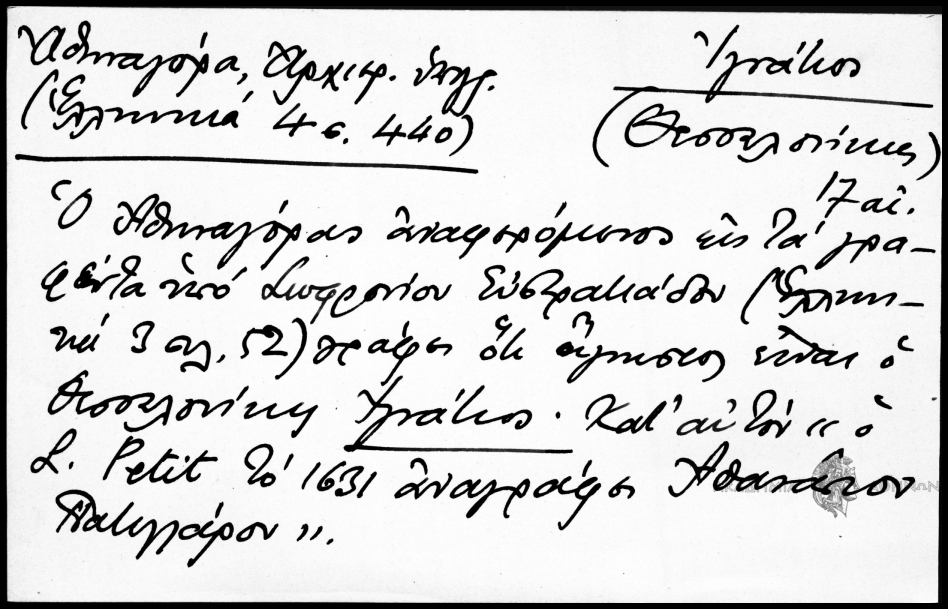 Ἀθηναγόρα, Ἀρχιερ. ὑπηρ.
(Ἑλληνικά 4 σ. 440)
Ἰγνάτιος
(Θεσσαλονίκης)
17 αἰ.
Ὁ Ἀθηναγόρας ἀναφερόμενος εἰς τά γρα-
φέντα ὑπό Σωφρονίου Εὐστρατιάδου (Ἑλληνι-
κά 3 σελ. 52) γράφει ὅτι εἶναι ὁ
Θεσσαλονίκης Ἰγνάτιος. Κατ' αὐτόν « ὁ
L. Petit τό 1631 ἀναγράφει Ἀθανάσιον
Πατελλάρον ».